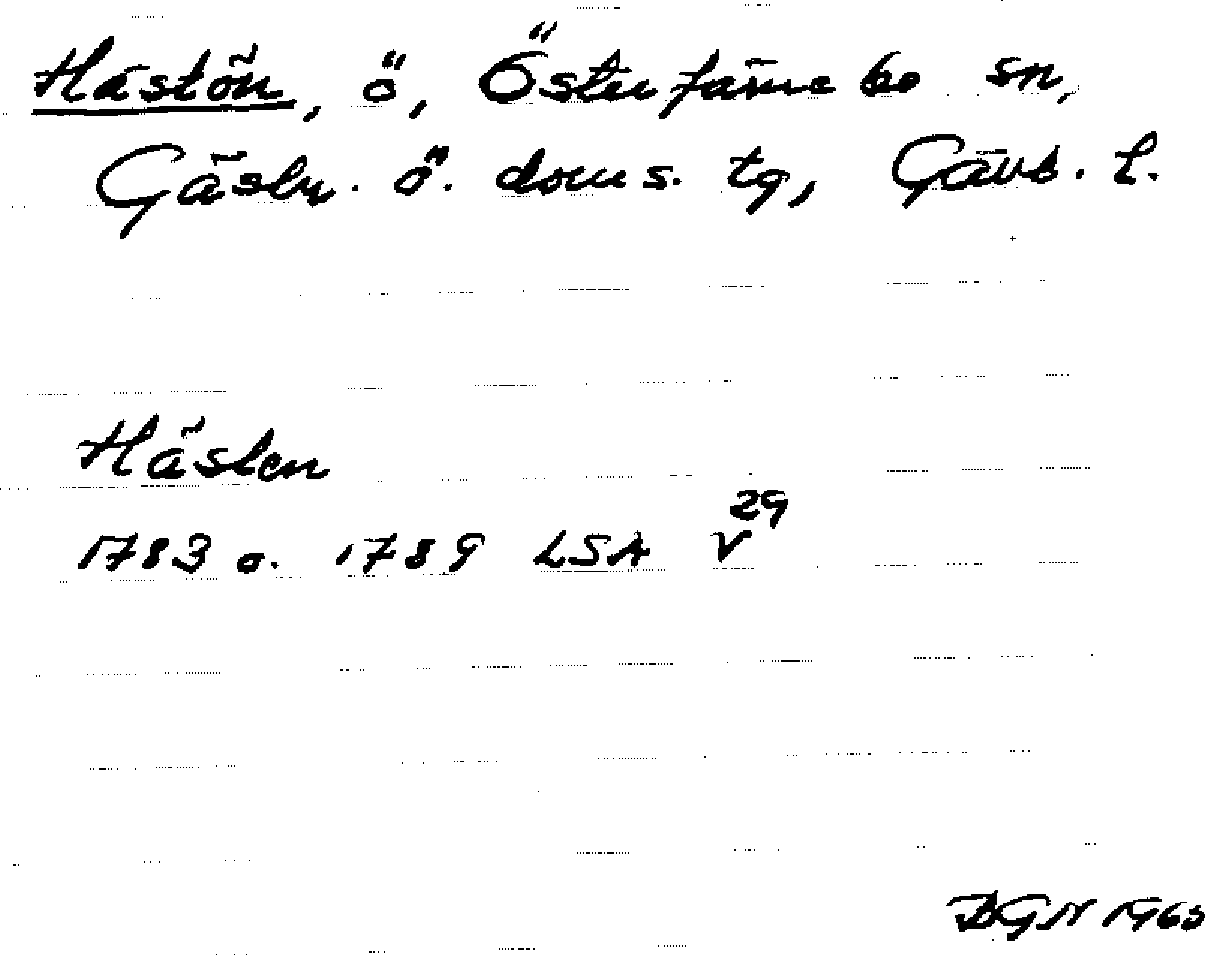 Hästön, ö, Österfärnebo sn,
Gästr. ö. doms. tg, Gävb. l.
Hästen
1783 o. 1789 LSA V 29
BGN 1963